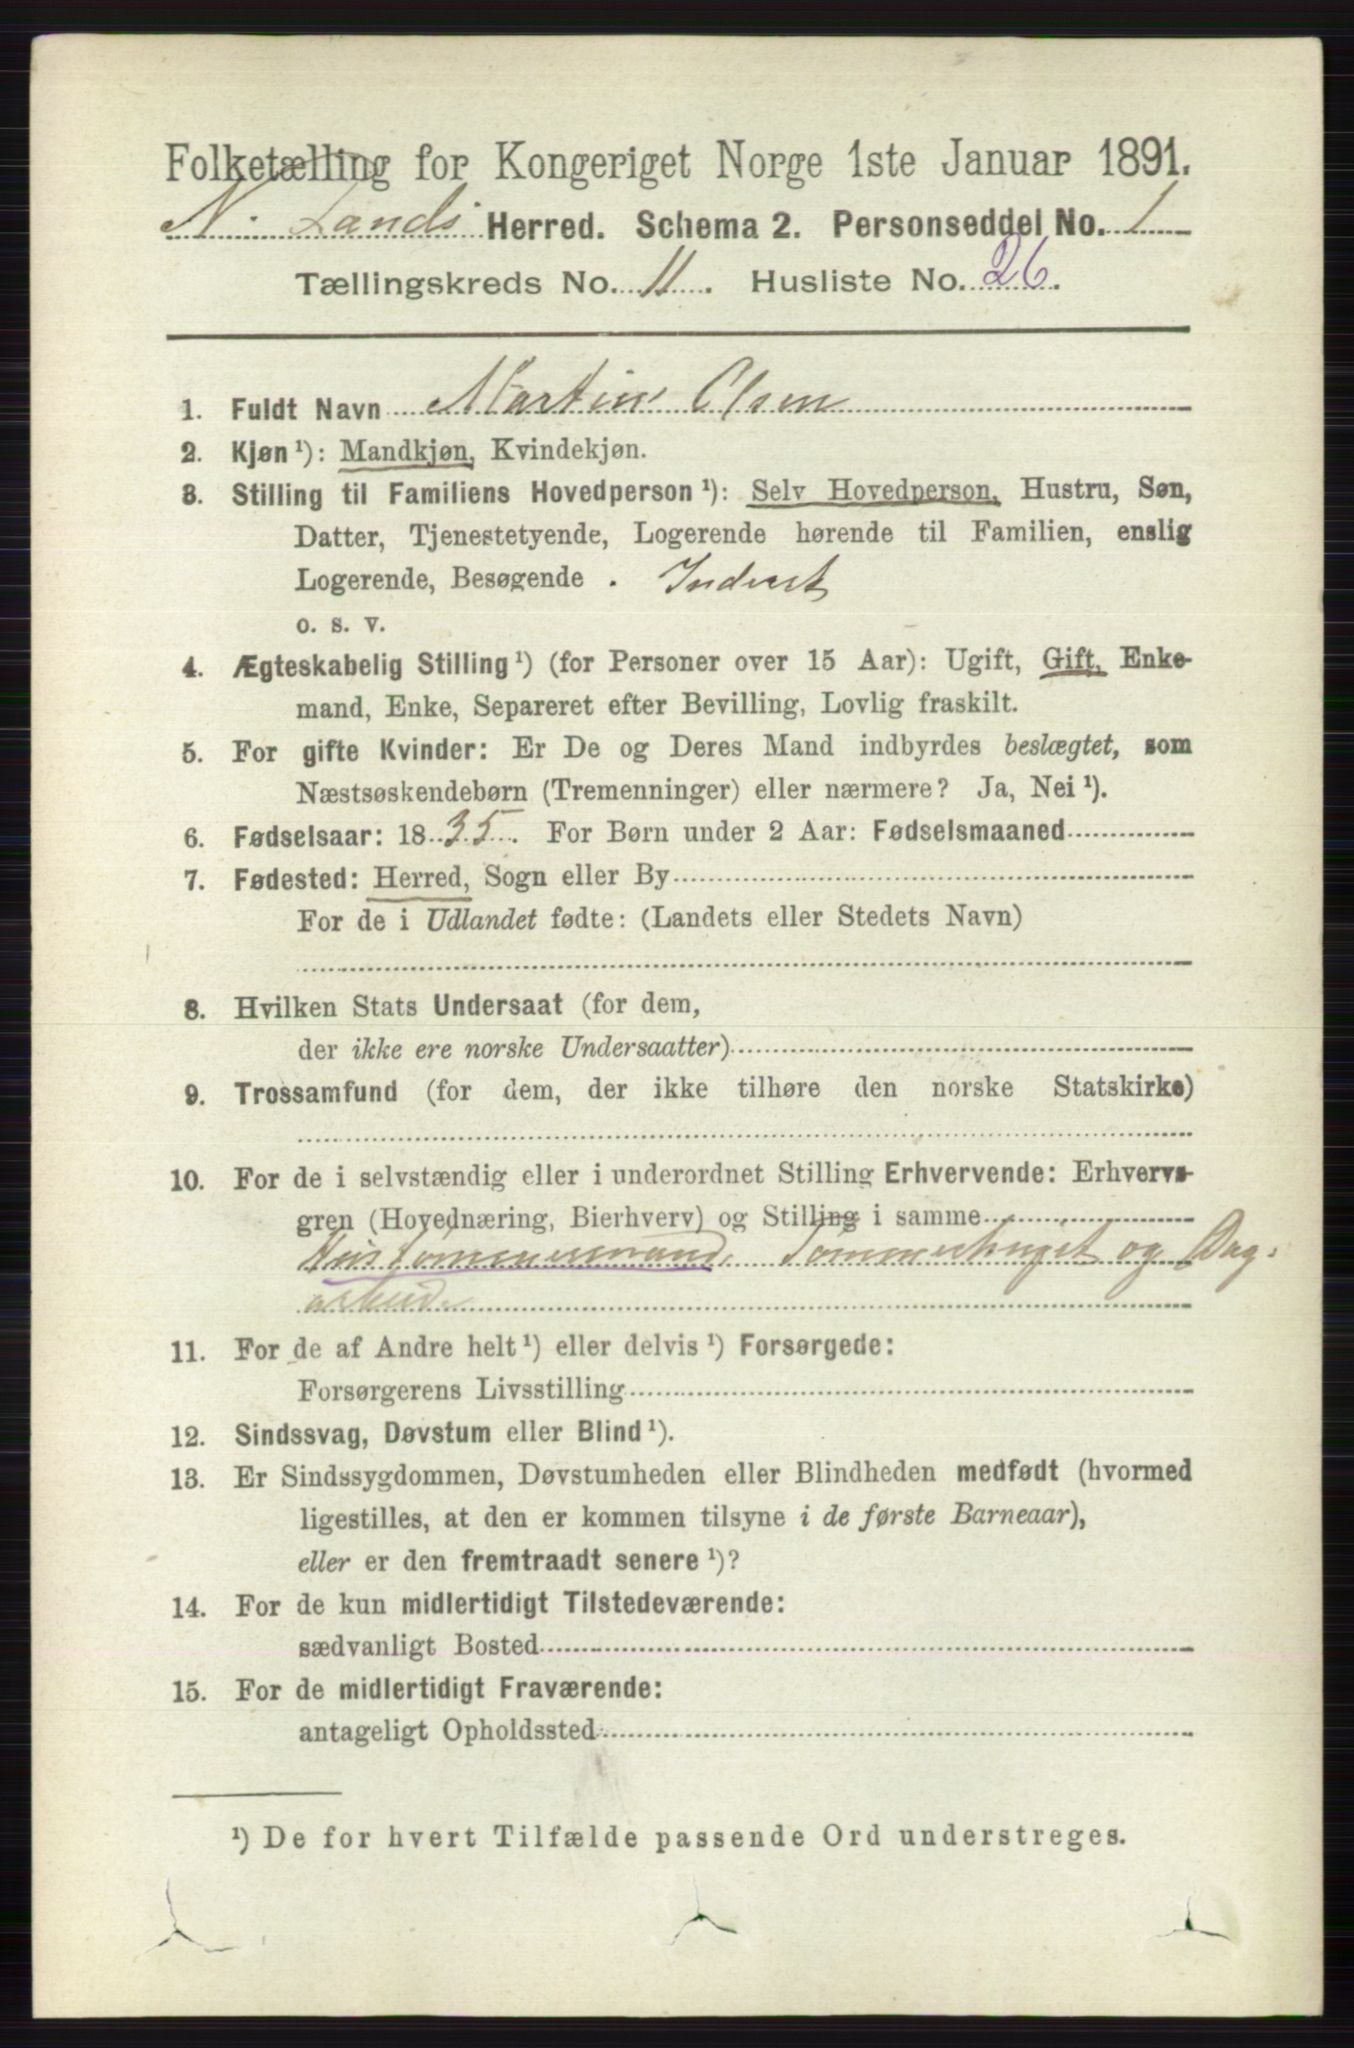 Folketælling for Kongeriget Norge 1ste Januar 1891.
N. Lands Herred. Schema 2. Personseddel No. 1
Tællingskreds No. 11. Husliste No. 26.
1. Fuldt Navn Martin Olsen
2. Kjøn ¹): Mandkjøn, Kvindekjøn.
3. Stilling til Familiens Hovedperson ¹): Selv Hovedperson, Hustru, Søn,
Datter, Tjenestetyende, Logerende hørende til Familien, enslig
Logerende, Besøgende . Inderst
o. s. v.
4. Ægteskabelig Stilling ¹) (for Personer over 15 Aar): Ugift, Gift, Enke-
mand, Enke, Separeret efter Bevilling, Lovlig fraskilt.
5. For gifte Kvinder: Er De og Deres Mand indbyrdes beslægtet, som
Næstsøskendebørn (Tremenninger) eller nærmere? Ja, Nei ¹).
6. Fødselsaar: 1835. For Børn under 2 Aar: Fødselsmaaned
7. Fødested: Herred, Sogn eller By
For de i Udlandet fødte: (Landets eller Stedets Navn)
8. Hvilken Stats Undersaat (for dem,
der ikke ere norske Undersaatter)
9. Trossamfund (for dem, der ikke tilhøre den norske Statskirke)
10. For de i selvstændig eller i underordnet Stilling Erhvervende: Erhvervs-
gren (Hovednæring, Bierhverv) og Stilling i samme
Hustømmermand. Tømmerhuget og Dag-
arbeid
11. For de af Andre helt ¹) eller delvis ¹) Forsørgede:
Forsørgerens Livsstilling
12. Sindssvag, Døvstum eller Blind ¹).
13. Er Sindssygdommen, Døvstumheden eller Blindheden medfødt (hvormed
ligestilles, at den er kommen tilsyne i de første Barneaar),
eller er den fremtraadt senere ¹)?
14. For de kun midlertidigt Tilstedeværende:
sædvanligt Bosted
15. For de midlertidigt Fraværende:
antageligt Opholdssted
¹) De for hvert Tilfælde passende Ord understreges.